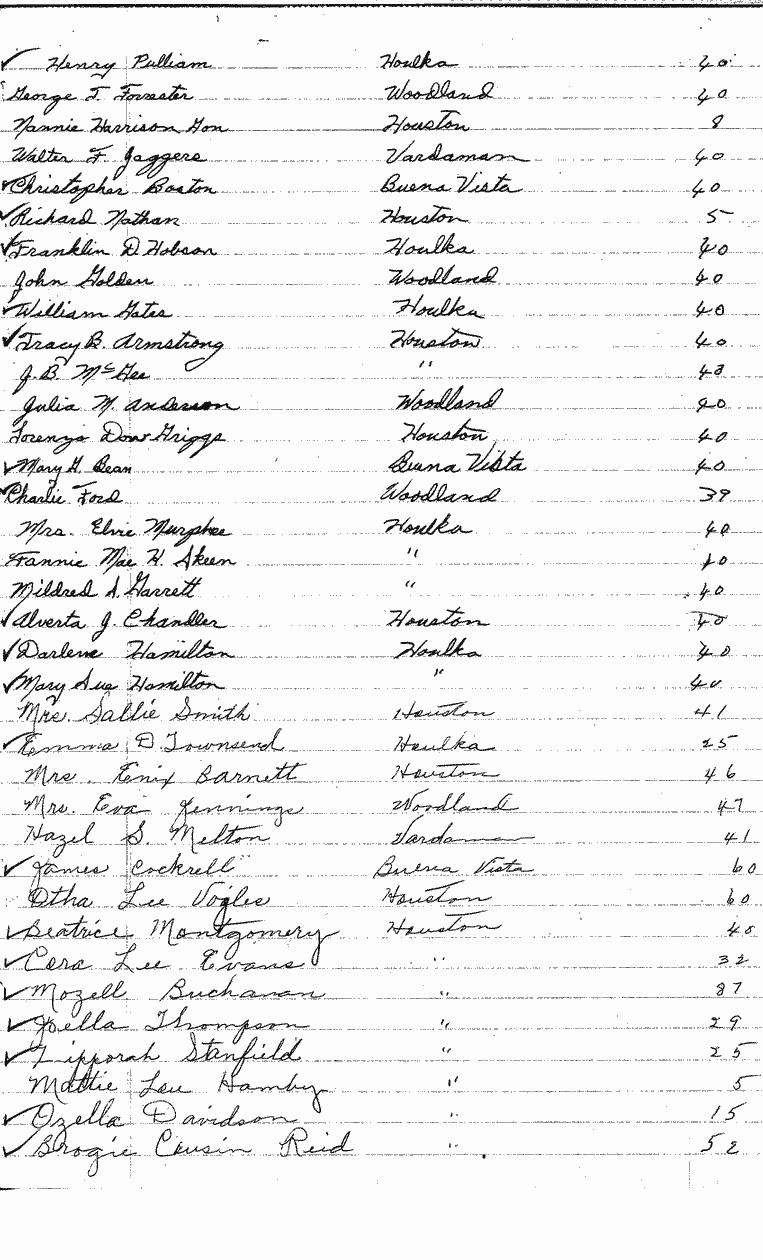 ✓ Henry Pulliam Houlka 40
George T. Forrester Woodland 40
Nannie Harrison Gon Houston 8
Walter F. Jaggers Vardaman 40
✓ Christopher Boston Buena Vista 40
✓ Richard Nathan Houston 5
✓ Franklin D. Hobson Houlka 40
John Golden Woodland 40
✓ William Gates Houlka 40
✓ Tracy B. Armstrong Houston 40
J.B. McGee " 40
Julia M. Anderson Woodland 40
Lorenza Dow Griggs Houston 40
✓ Mary G. Bean Buena Vista 40
✓ Charlie Ford Woodland 39
Mrs. Elvie Murphree Houlka 40
Fannie Mae H. Skeen " 40
Mildred S. Garrett " 40
✓ Alverta J. Chandler Houston 40
✓ Darlene Hamilton Houlka 40
✓ Mary Sue Hamilton " 40
Mrs. Sallie Smith Houston 41
✓ Emma D. Townsend Houlka 25
Mrs. Enix Barnett Houston 46
Mrs. Eva Jennings Woodland 47
Hazel S. Melton Vardaman 41
✓ James Cockrell Buena Vista 60
Otha Lee Vogles Houston 60
✓ Beatrice Montgomery Houston 40
✓ Cora Lee Evans " 32
✓ Mozell Buchanan " 87
✓ Joella Thompson " 29
✓ Zipporah Stanfield " 25
Mattie Lou Hamby " 5
✓ Ozella Davidson " 15
✓ Brogie Cousin Reid " 52